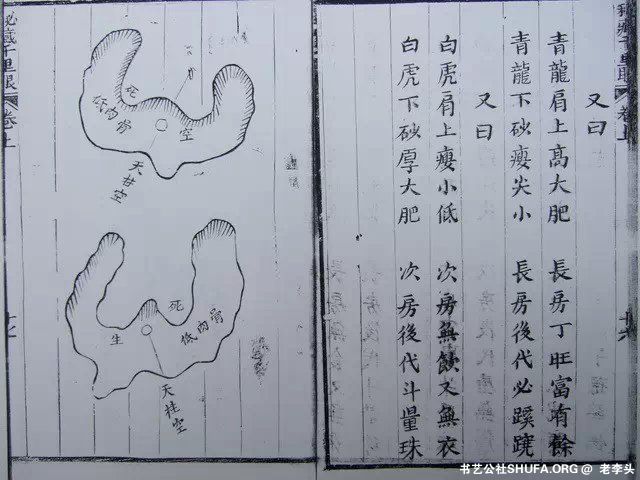 秘藏千里眼 卷上
又曰
青龍肩上高大肥 長房丁旺富有餘
青龍下砂瘦尖小 長房後代必蹊蹺
又曰
白虎肩上瘦小低 次房無飲又無衣
白虎下砂厚大肥 次房後代斗量珠
死
低肉骨
空
天柱空
死
低肉骨
生
天柱空
秘藏千里眼 卷上
书艺公社SHUFA.ORG @ 老李头